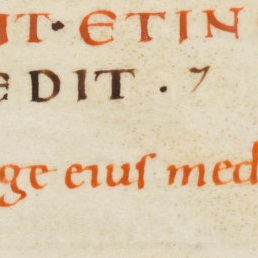 IT· ETIN
EDIT . 7
ge eius med